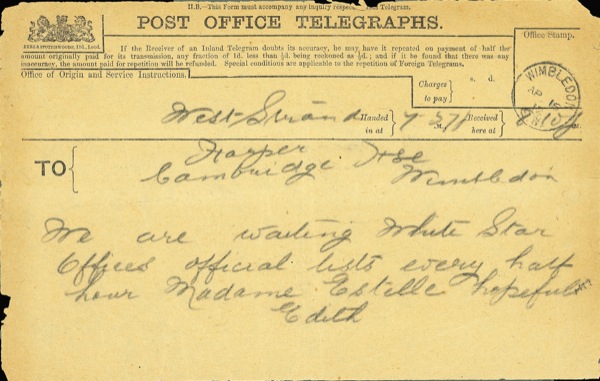 N.B.—This Form must accompany any inquiry respecting this Telegram.
POST OFFICE TELEGRAPHS.
If the Receiver of an Inland Telegram doubts its accuracy, he may have it repeated on payment of half the
amount originally paid for its transmission, any fraction of 1d. less than ½d. being reckoned as ½d.; and if it be found that there was any
inaccuracy, the amount paid for repetition will be refunded. Special conditions are applicable to the repetition of Foreign Telegrams.
Office Stamp.
WIMBLEDON
AP 16
Office of Origin and Service Instructions.
Charges to pay
s. d.
West Strand
Handed in at
Received here at
TO
Harper Hse
Cambridge Wimbledon
We are waiting White Star
Offices official lists every half
hour Madame Estelle hopeful
Edith